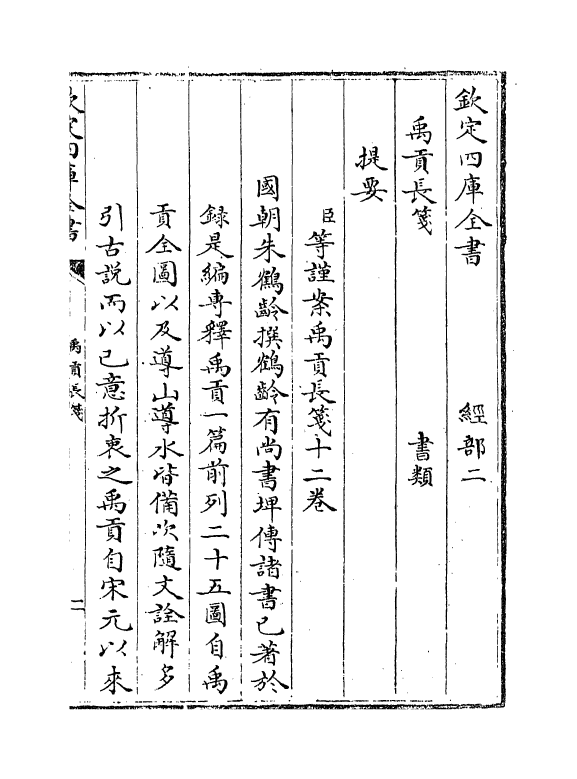 欽定四庫全書　　　經部二
禹貢長箋　　　書類
提要
臣等謹案禹貢長箋十二卷
國朝朱鶴齡撰鶴齡有尚書埤傳諸書已著於
録是編專釋禹貢一篇前列二十五圖自禹
貢全圖以及導山導水皆備次隨文詮解多
引古説而以已意折衷之禹貢自宋元以來
欽定四庫全書　禹貢長箋　一